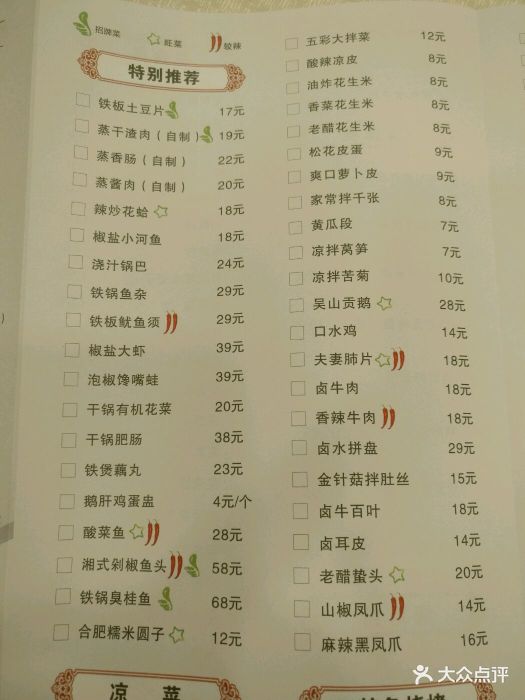 招牌菜 旺菜 较辣
特别推荐
铁板土豆片 17元
蒸干渣肉（自制） 19元
蒸香肠（自制） 22元
蒸酱肉（自制） 20元
辣炒花蛤 18元
椒盐小河鱼 18元
浇汁锅巴 24元
铁锅鱼杂 29元
铁板鱿鱼须 29元
椒盐大虾 39元
泡椒馋嘴蛙 39元
干锅有机花菜 20元
干锅肥肠 38元
铁煲藕丸 23元
鹅肝鸡蛋盅 4元/个
酸菜鱼 28元
湘式剁椒鱼头 58元
铁锅臭桂鱼 68元
合肥糯米圆子 12元
凉菜
五彩大拌菜 12元
酸辣凉皮 8元
油炸花生米 8元
香菜花生米 8元
老醋花生米 8元
松花皮蛋 9元
爽口萝卜皮 9元
家常拌千张 8元
黄瓜段 7元
凉拌莴笋 7元
凉拌苦菊 10元
吴山贡鹅 28元
口水鸡 14元
夫妻肺片 18元
卤牛肉 18元
香辣牛肉 18元
卤水拼盘 29元
金针菇拌肚丝 15元
卤牛百叶 18元
卤耳皮 14元
老醋蛰头 20元
山椒凤爪 14元
麻辣黑凤爪 16元
大众点评